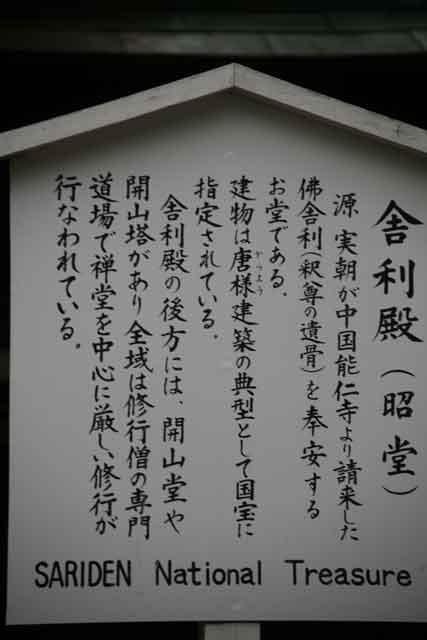 舎利殿(昭堂)
源 実朝が中国能仁寺より請来した
佛舎利(釈尊の遺骨)を奉安する
お堂である.
建物は唐様建築の典型として国宝に
からよう
指定されている.
舎利殿の後方には、開山堂や
開山塔があり全域は修行僧の専門
道場で禅堂を中心に厳しい修行が
行なわれている。
SARIDEN National Treasure